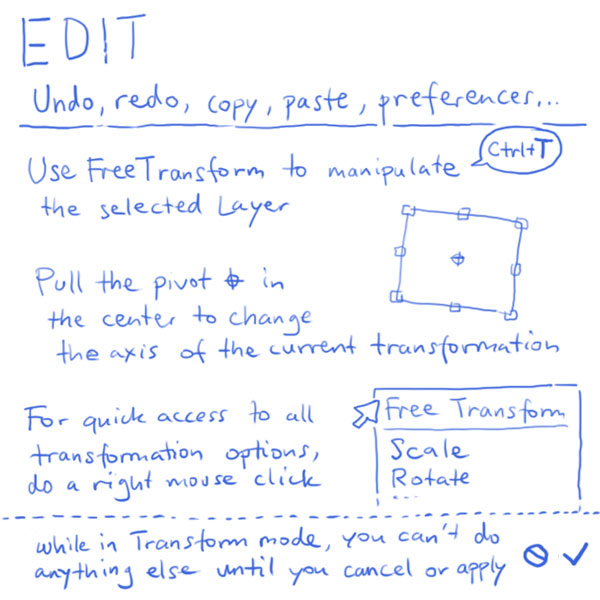 EDIT
Undo, redo, copy, paste, preferences...
Use FreeTransform to manipulate
Ctrl+T
the selected Layer
Pull the pivot in
the center to change
the axis of the current transformation
For quick access to all
transformation options,
do a right mouse click
Free Transform
Scale
Rotate
...
while in Transform mode, you can't do
anything else until you cancel or apply